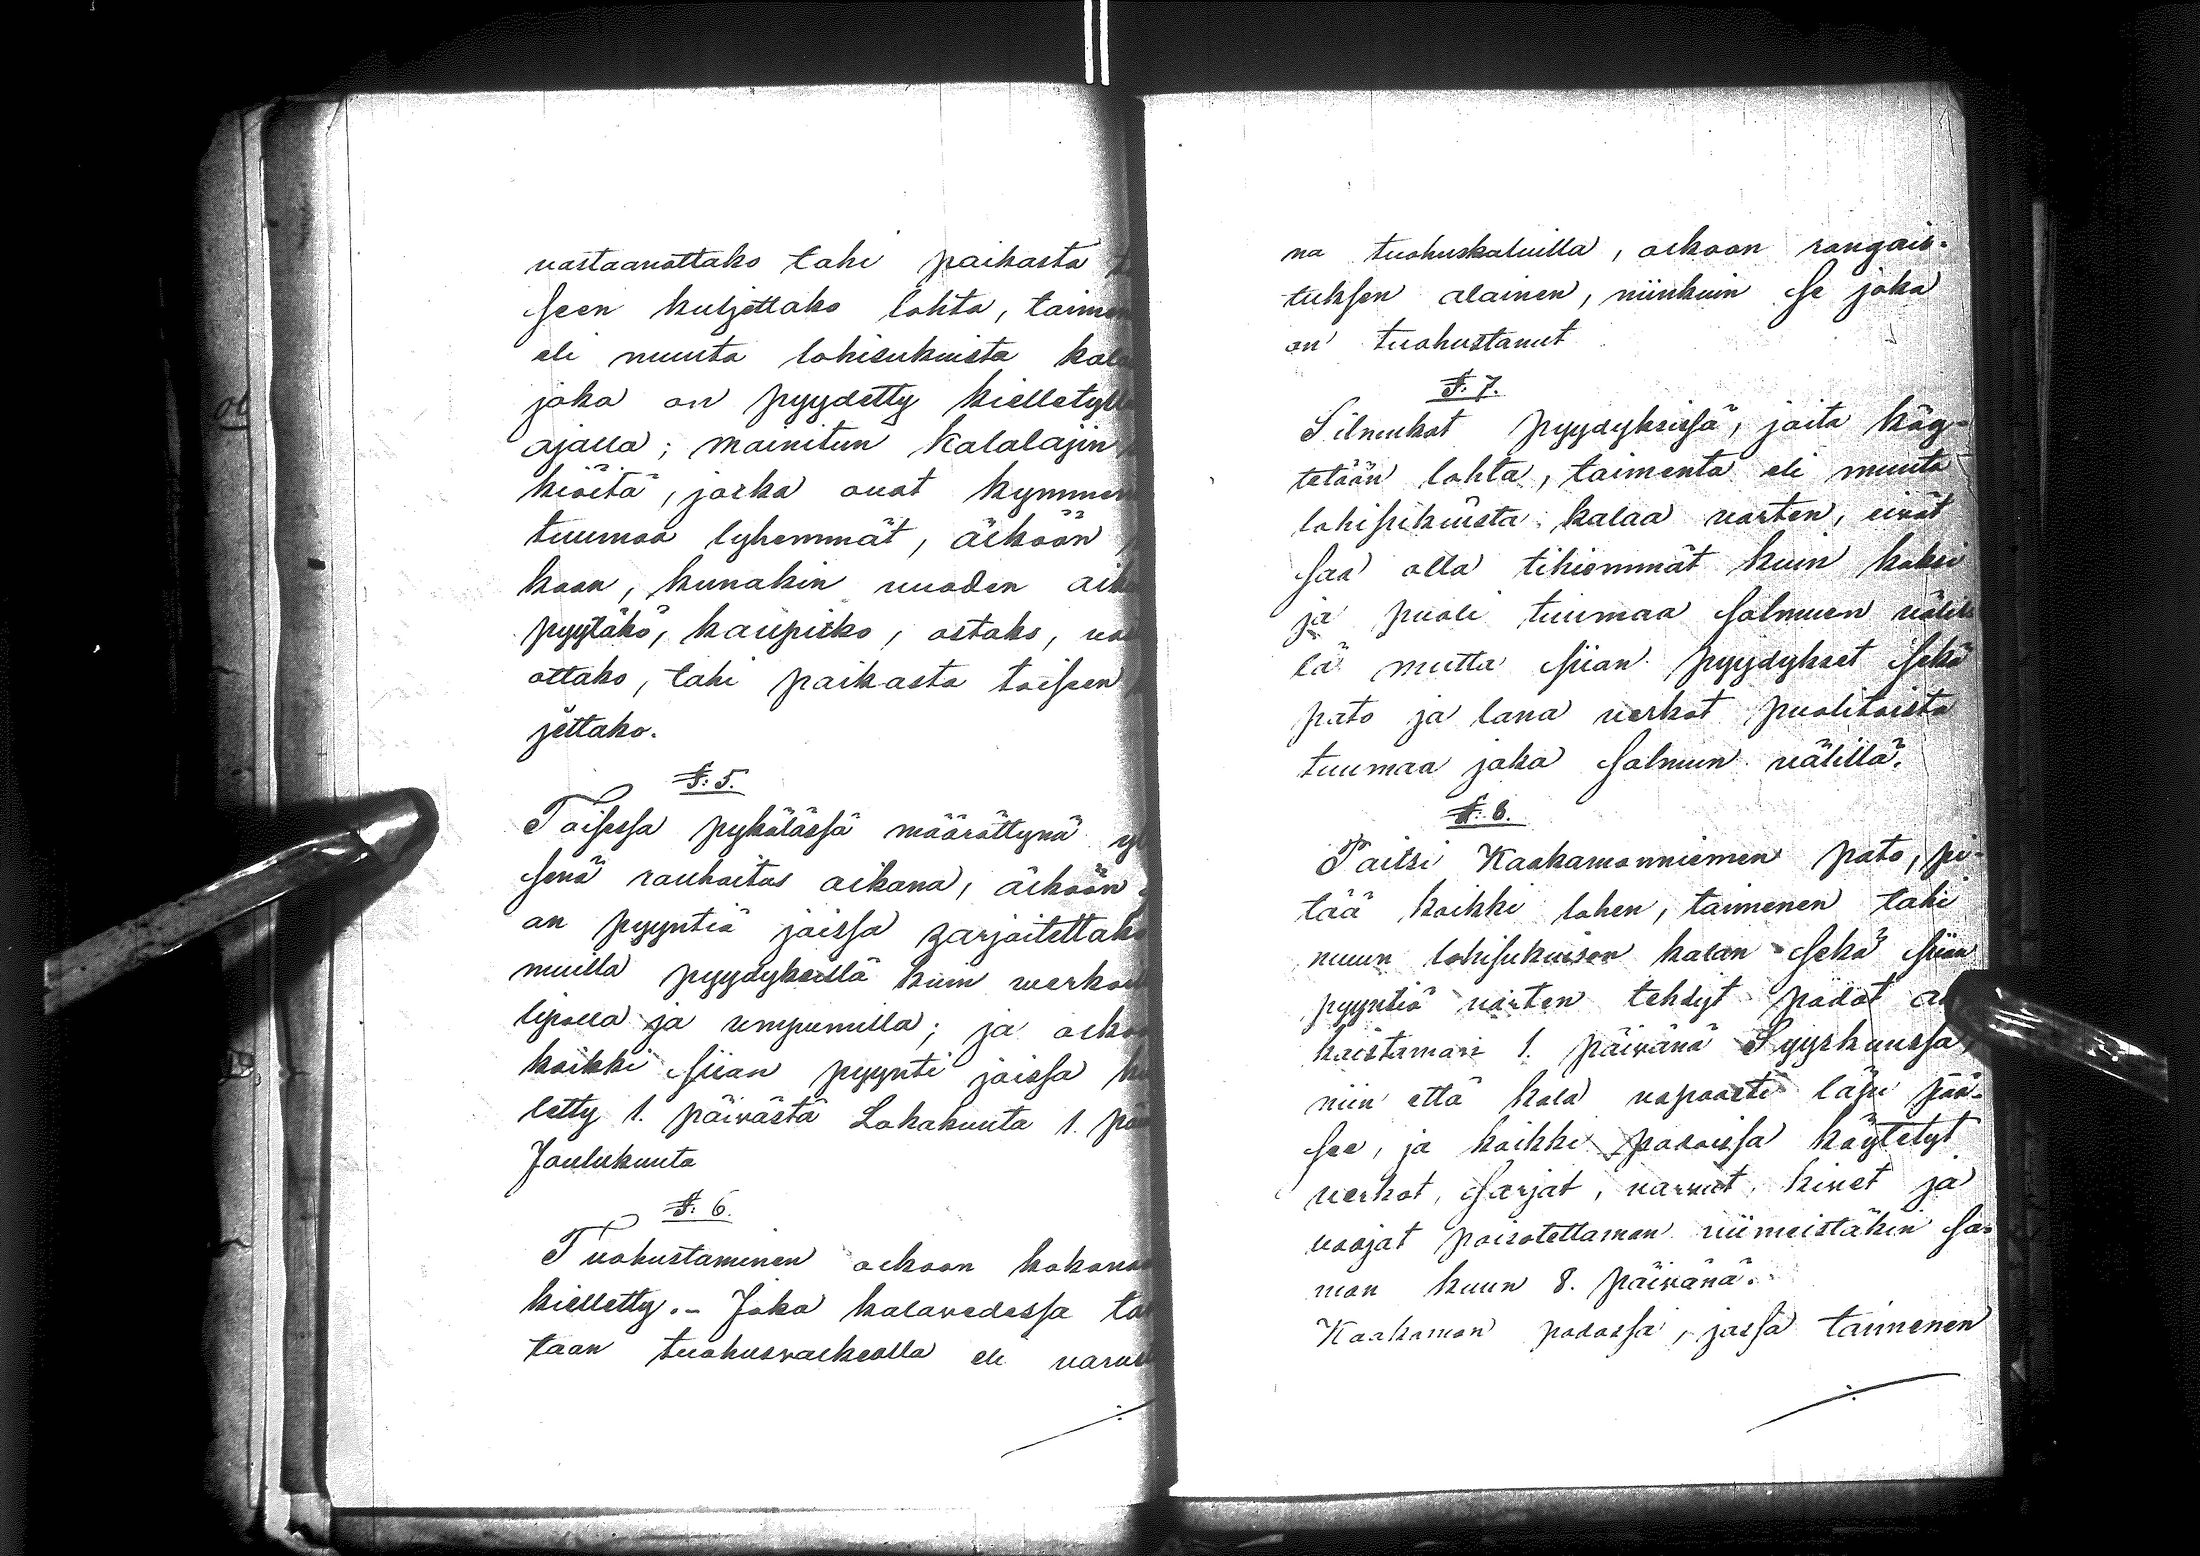 vastaanottako tahi paikasta
seen kuljettako lohta, taimen
eli muuta lohisukuista kala
joka on pyydetty kielletyll
ajalla; mainitun kalalajin
kiöitä, jotka ovat kymmen
tuumaa lyhemmät, älköön
koon, kunakin vuoden aik
pyytäkö, kaupitko, ostako, va
ottako, tahi paikasta toiseen
jettako.
§. 5.
Toisessa pykälässä määrättynä y
senä rauhoitus aikana, älköön
on pyyntiä joissa harjoitettako
muilla pyydyksillä kuin verkoi
lipolla ja umpumilla; ja olko
kaikki siian pyynti joissa k
letty 1. päivästä Lokakuuta 1. päi
Joulukuuta
§. 6.
Tuohustaminen olkoon kokona
kielletty. - Joka kalavedessa ta
taan tuohusvalkealla eli varus
na tuohuskaluilla, olkoon rangais-
tuksen alainen, niinkuin se joka
on tuohustanut
§. 7.
Silmukat pyydyksissä, joita käy-
tetään lohta, taimenta eli muuta
lohisukuista kalaa varten, eivät
saa olla tihiemmät kuin kaksi
ja puoli tuumaa solmuen väli
lä mutta siian pyydykset sekä
pato ja lana verkot puolitoista
tuumaa joka solmun välillä.
§. 8.
Paitsi Kaakamanniemen pato, pi-
tää kaikki lohen, taimenen tahi
muun lohisukuisen kalan sekä siian
pyyntiä varten tehdyt padot
kaistaman 1. päivänä Syyskuussa,
niin että kala vapaasti läpi pää-
see, ja kaikki padoissa käytetyt
verkot, sarjat, varvut, kivet ja
vaajat poisotettaman viimeistäkin sa-
man kuun 8. päivänä.
Kaakaman padossa, jossa taimenen